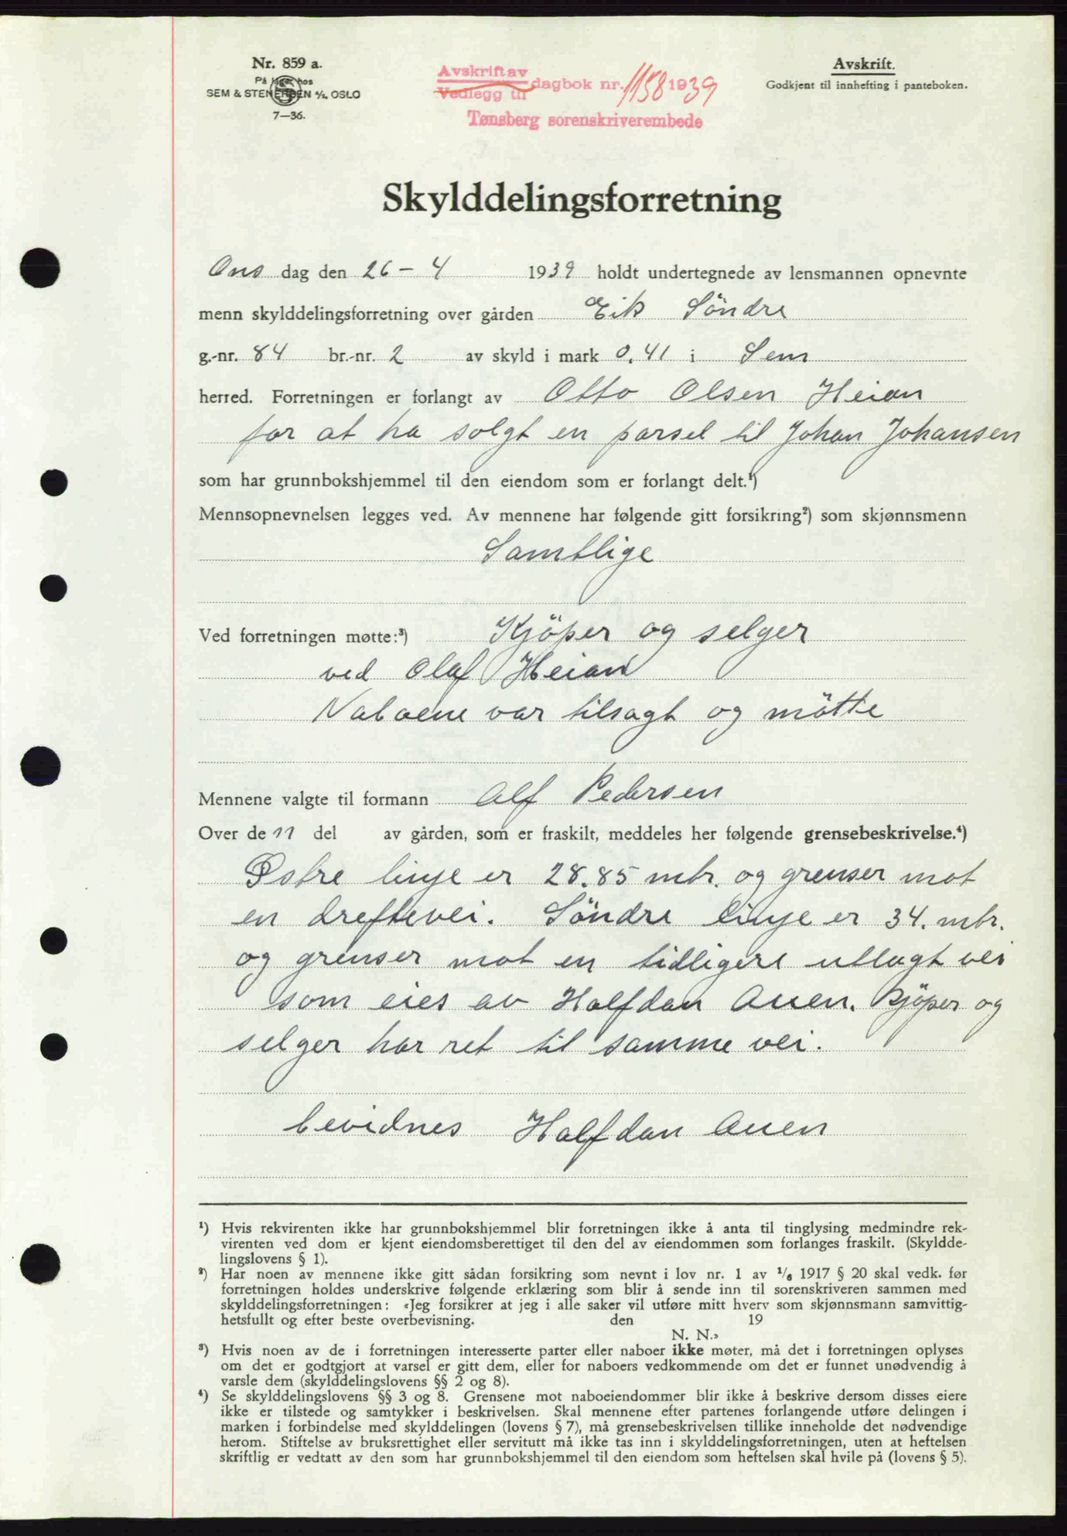 Nr. 859 a.
På lager hos
SEM & STENERSEN A/S, OSLO
7—36.
Avskrift av
Vedlegg til
dagbok nr. 1158 1939
Tønsberg sorenskriverembede
Avskrift.
Godkjent til innhefting i panteboken.
Skylddelingsforretning
Ons dag den 26 - 4 1939 holdt undertegnede av lensmannen opnevnte
menn skylddelingsforretning over gården Eik Söndre
g.-nr. 84 br.-nr. 2 av skyld i mark 0,41 i Sem
herred. Forretningen er forlangt av Otto Olsen Heian
for at ha solgt en parsel til Johan Johansen
som har grunnbokshjemmel til den eiendom som er forlangt delt.¹)
Mennsopnevnelsen legges ved. Av mennene har følgende gitt forsikring²) som skjønnsmenn
Samtlige
Ved forretningen møtte:³) Kjöper og selger
ved Olaf Heian
Naboene var tilsagt og mötte
Mennene valgte til formann Alf Pedersen
Over de 11 del av gården, som er fraskilt, meddeles her følgende grensebeskrivelse.⁴)
Østre linje er 28.85 mtr. og grenser mot
en dreftevei. Söndre linje er 34. mtr.
og grenser mot en tidligere utlagt vei
som eies av Halfdan Auen. Kjöper og
selger har ret til samme vei.
bevidnes Halfdan Auen
¹) Hvis rekvirenten ikke har grunnbokshjemmel blir forretningen ikke å anta til tinglysing medmindre rek-
virenten ved dom er kjent eiendomsberettiget til den del av eiendommen som forlanges fraskilt. (Skyldde-
lingslovens § 1).
²) Har noen av mennene ikke gitt sådan forsikring som nevnt i lov nr. 1 av 1/6 1917 § 20 skal vedk. før
forretningen holdes underskrive følgende erklæring som blir å sende inn til sorenskriveren sammen med
skylddelingsforretningen: «Jeg forsikrer at jeg i alle saker vil utføre mitt hverv som skjønnsmann samvittig-
hetsfullt og efter beste overbevisning. den 19
N. N.»
³) Hvis noen av de i forretningen interesserte parter eller naboer ikke møter, må det i forretningen oplyses
om det er godtgjort at varsel er gitt dem, eller for naboers vedkommende om det er funnet unødvendig å
varsle dem (skylddelingslovens §§ 2 og 8).
⁴) Se skylddelingslovens §§ 3 og 8. Grensene mot naboeiendommer blir ikke å beskrive dersom disses eiere
ikke er tilstede og samtykker i beskrivelsen. Skal mennene efter partenes forlangende utføre delingen i
marken i forbindelse med skylddelingen (lovens § 7), må grensebeskrivelsen tillike inneholde det nødvendige
herom. Stiftelse av bruksrettighet eller servitutt må ikke tas inn i skylddelingsforretningen, uten at heftelsen
skriftlig er vedtatt av den som har grunnbokshjemmel til den eiendom som heftelsen skal hvile på (lovens § 5).